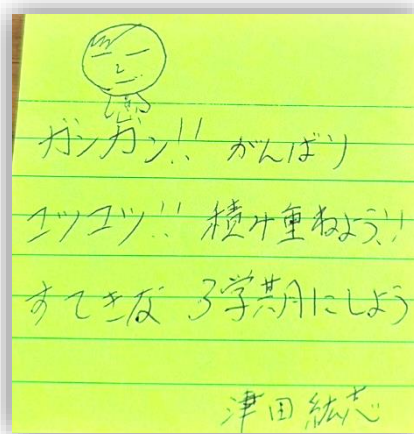 ガンガン!! がんばり
コツコツ!! 積み重ねよう!!
すてきな 3学期にしよう
津田 紘志